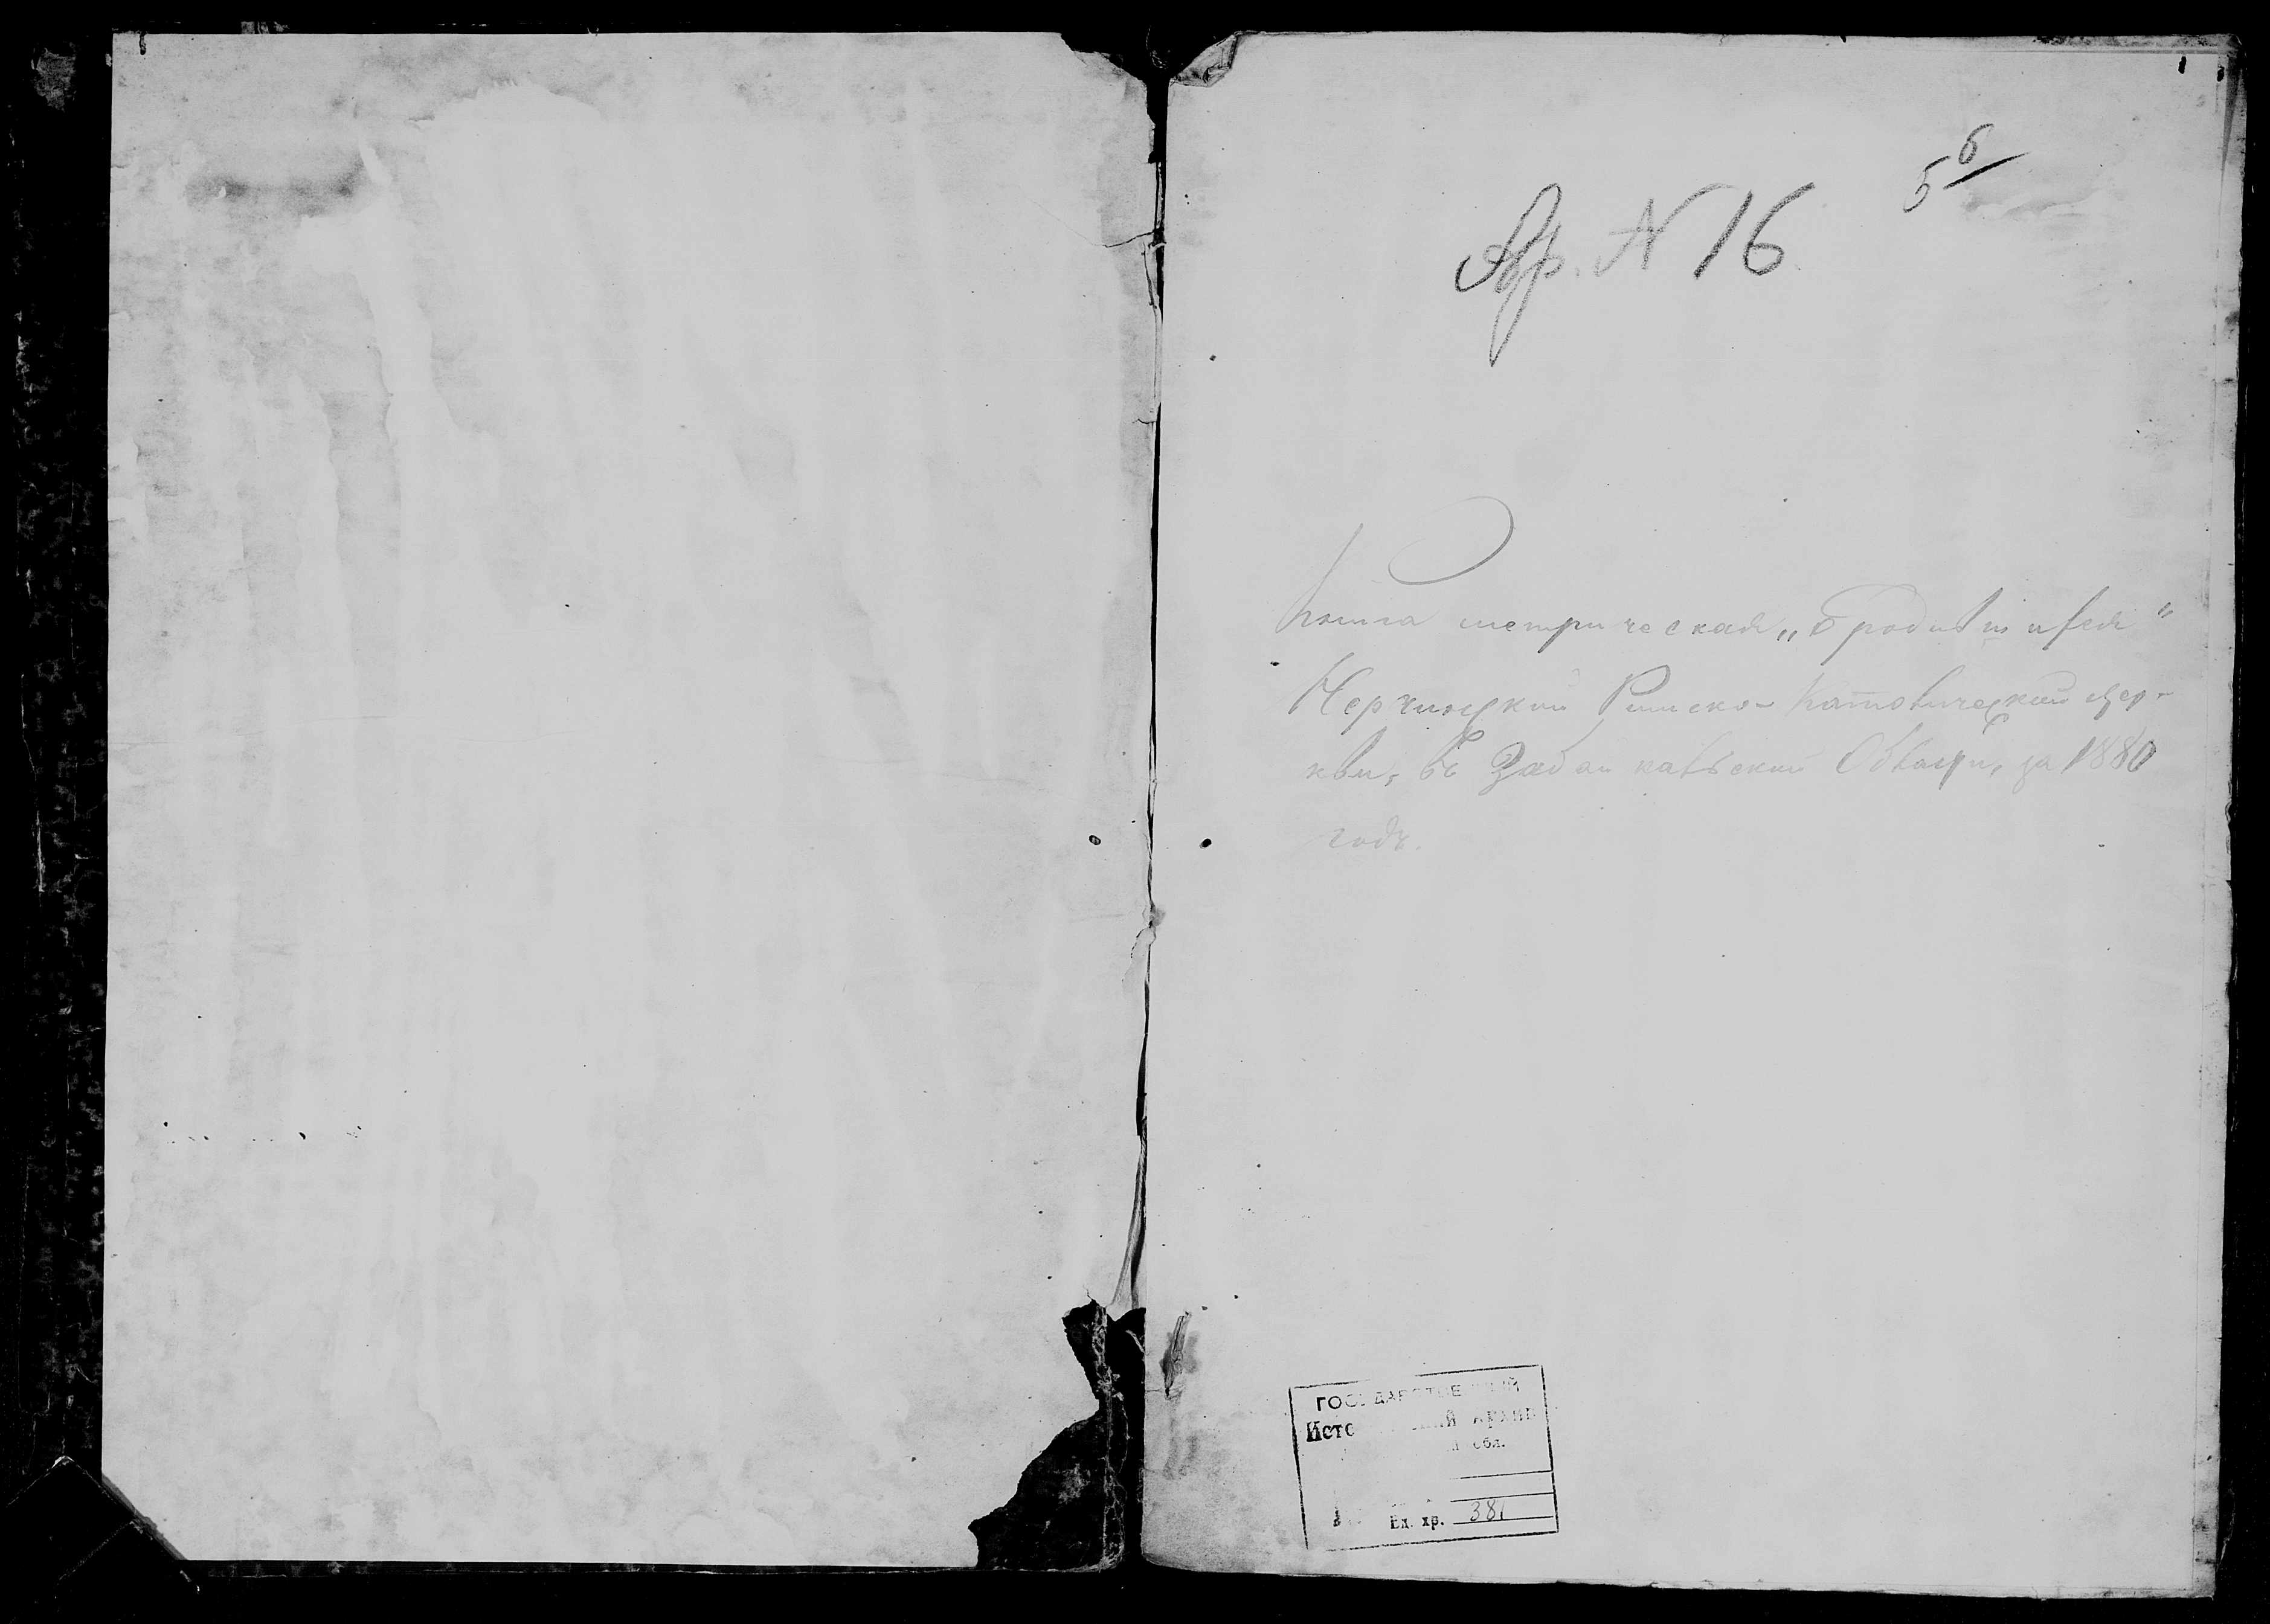 5 6
Ар. N 16
Книга метрическая „О родившихся"
Нерчинской Римско-Католической цер-
кви, въ Забайкальской Области, за 1880
годъ.
ГОСУДАРСТВЕННЫЙ
Исто ий архив
обл.
Ед. хр. 381